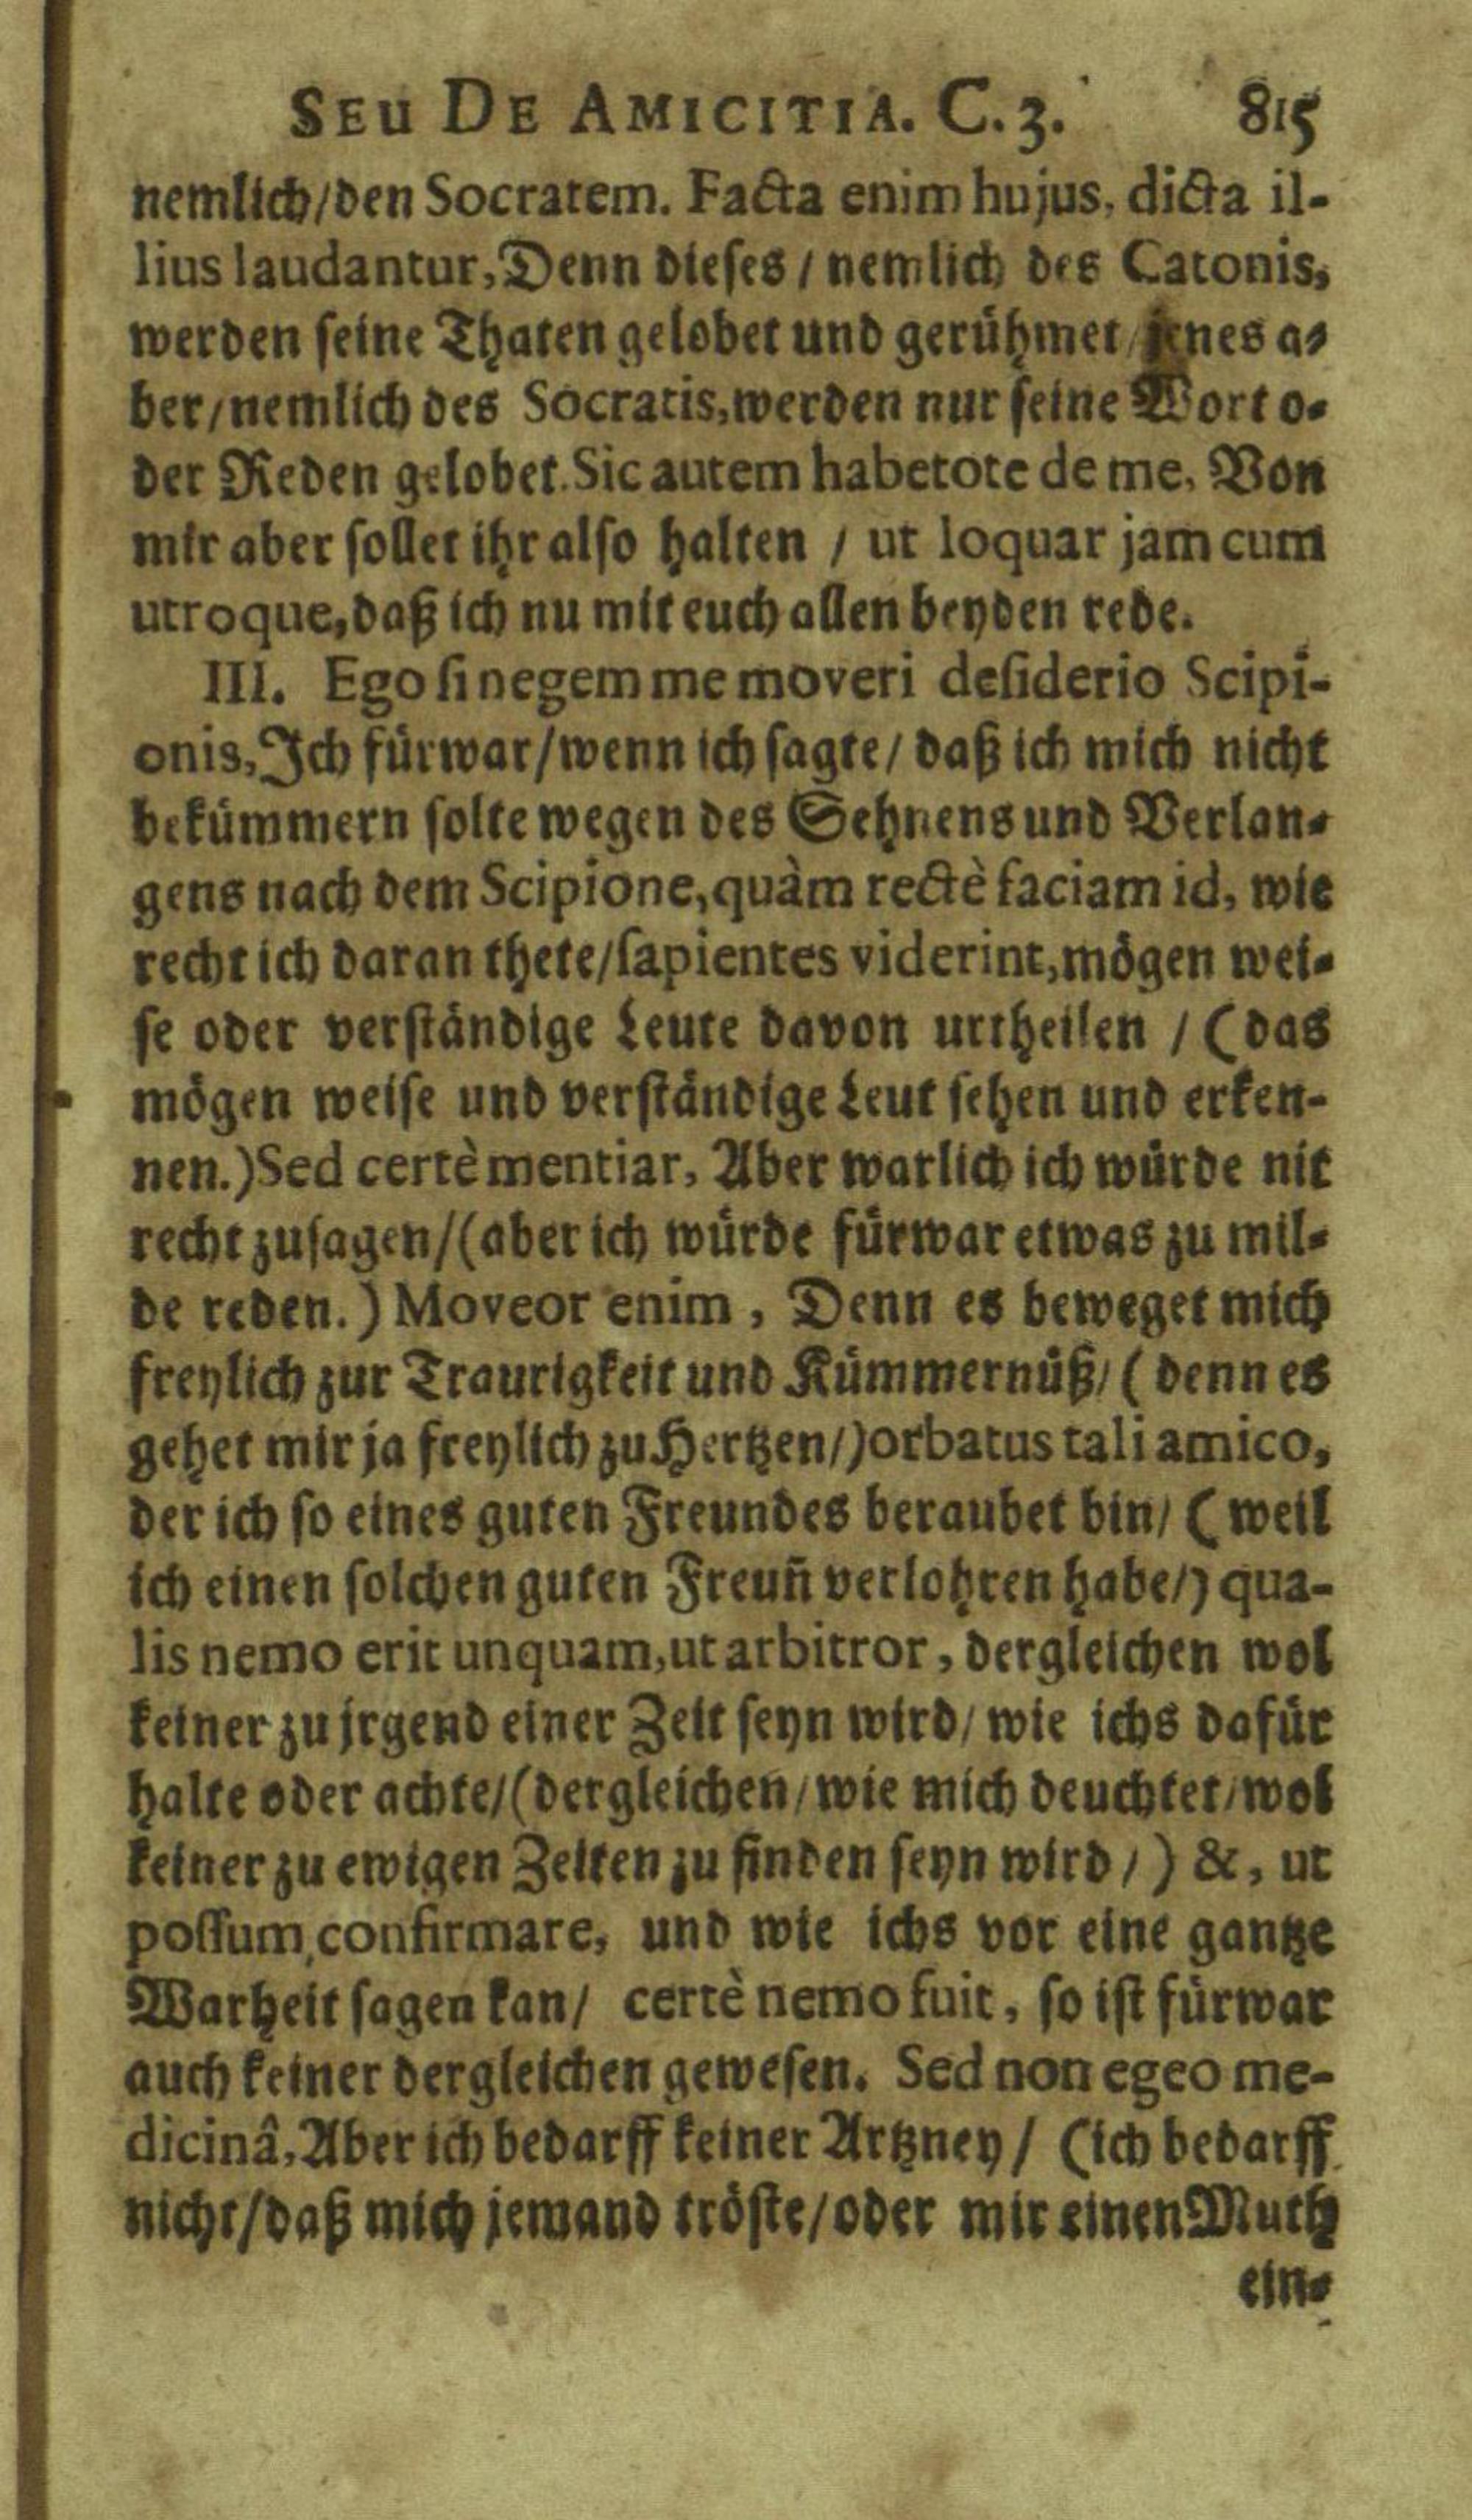 SEU DE AMICITIA. C. 3. 815
nemlich/den Socratem. Facta enim hujus, dicta il-
lius laudantur, Denn dieses / nemlich des Catonis,
werden seine Thaten gelobet und gerühmet/jenes a-
ber/nemlich des Socratis, werden nur seine Wort o-
der Reden gelobet. Sic autem habetote de me, Von
mir aber sollet ihr also halten / ut loquar jam cum
utroque, daß ich nu mit euch allen beyden rede.
III. Ego si negem me moveri desiderio Scipi-
onis, Ich fürwar/wenn ich sagte/ daß ich mich nicht
bekümmern solte wegen des Sehnens und Verlan-
gens nach dem Scipione, quàm rectè faciam id, wie
recht ich daran thete/sapientes viderint, mögen wei-
se oder verständige Leute davon urtheilen / (das
mögen weise und verständige Leut sehen und erken-
nen.) Sed certè mentiar, Aber warlich ich würde nit
recht zusagen/(aber ich würde fürwar etwas zu mil-
de reden.) Moveor enim, Denn es beweget mich
freylich zur Traurigkeit und Kümmernüß/ (denn es
gehet mir ja freylich zu Hertzen/) orbatus tali amico,
der ich so eines guten Freundes beraubet bin/ (weil
ich einen solchen guten Freuñ verlohren habe/) qua-
lis nemo erit unquam, ut arbitror, dergleichen wol
keiner zu jrgend einer Zeit seyn wird/ wie ichs dafür
halte oder achte/(dergleichen/wie mich deuchtet/wol
keiner zu ewigen Zeiten zu finden seyn wird/) &, ut
possum confirmare, und wie ichs vor eine gantze
Warheit sagen kan/ certè nemo fuit, so ist fürwar
auch keiner dergleichen gewesen. Sed non egeo me-
dicinâ, Aber ich bedarff keiner Artzney / (ich bedarff
nicht/daß mich jemand tröste/oder mir einen Muth
ein-